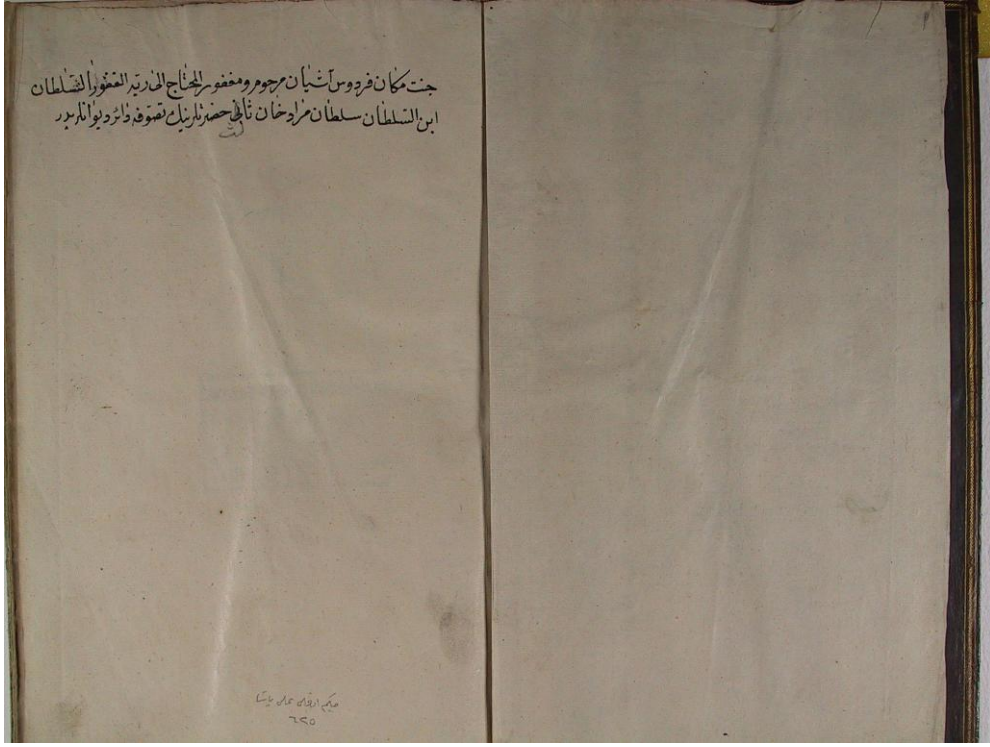 جنت مكان فردوس آشيان مرحوم و مغفور المحتاج الى ربّه الغفور السّلطان
ابن السّلطان سلطان مراد خان ثانى حضرتلرينك تصوّفه دائر ديوانلريدر
ثالث
حكيم اوغلى على پاشا
٦٢٥